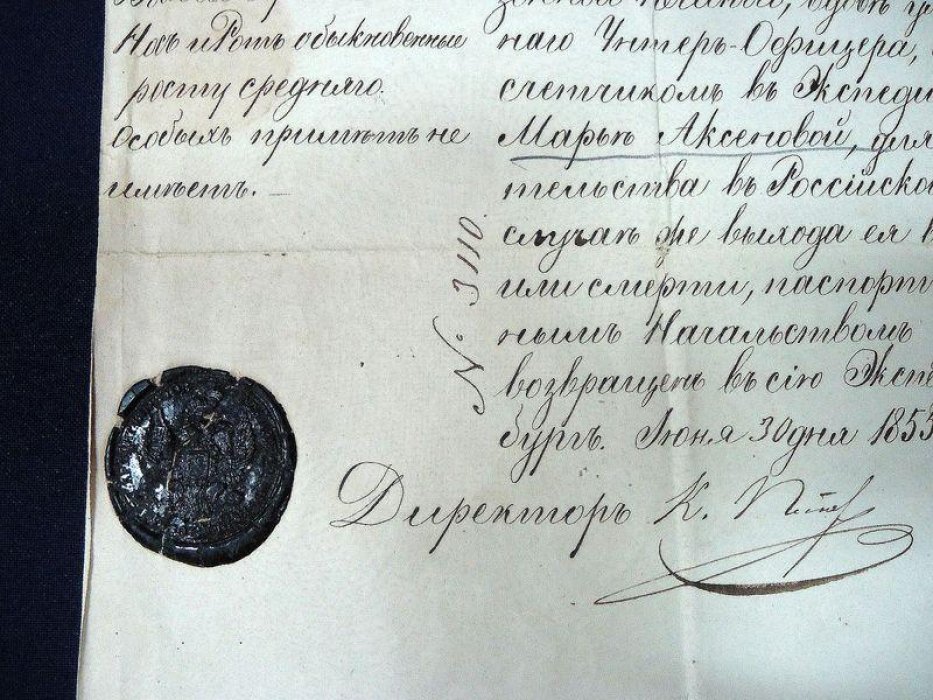 Носъ и Ротъ обыкновенные
росту средняго.
особыхъ примѣтъ не
имѣетъ. —
наго Унтеръ-Офицера,
счетчикомъ въ Экспеди
Марьѣ Аксеновой, для
тельства въ Россійско
случаѣ же выхода ея в
или смерти, паспортъ
нымъ Начальствомъ
возвращенъ въ сію Экспе
бургъ. Іюня 30 дня 1853
№. 3110.
Директоръ К.